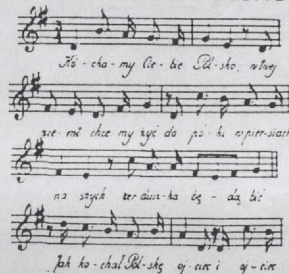 Ko - cha - my Cie - bie Pol - sko, w twej
zie - mi chce - my żyć do pó - ki w pier - siach
na szych ser dusz - ka bę - dą bić
Jak ko - chał Pol - skę oj - ciec i oj - ciec